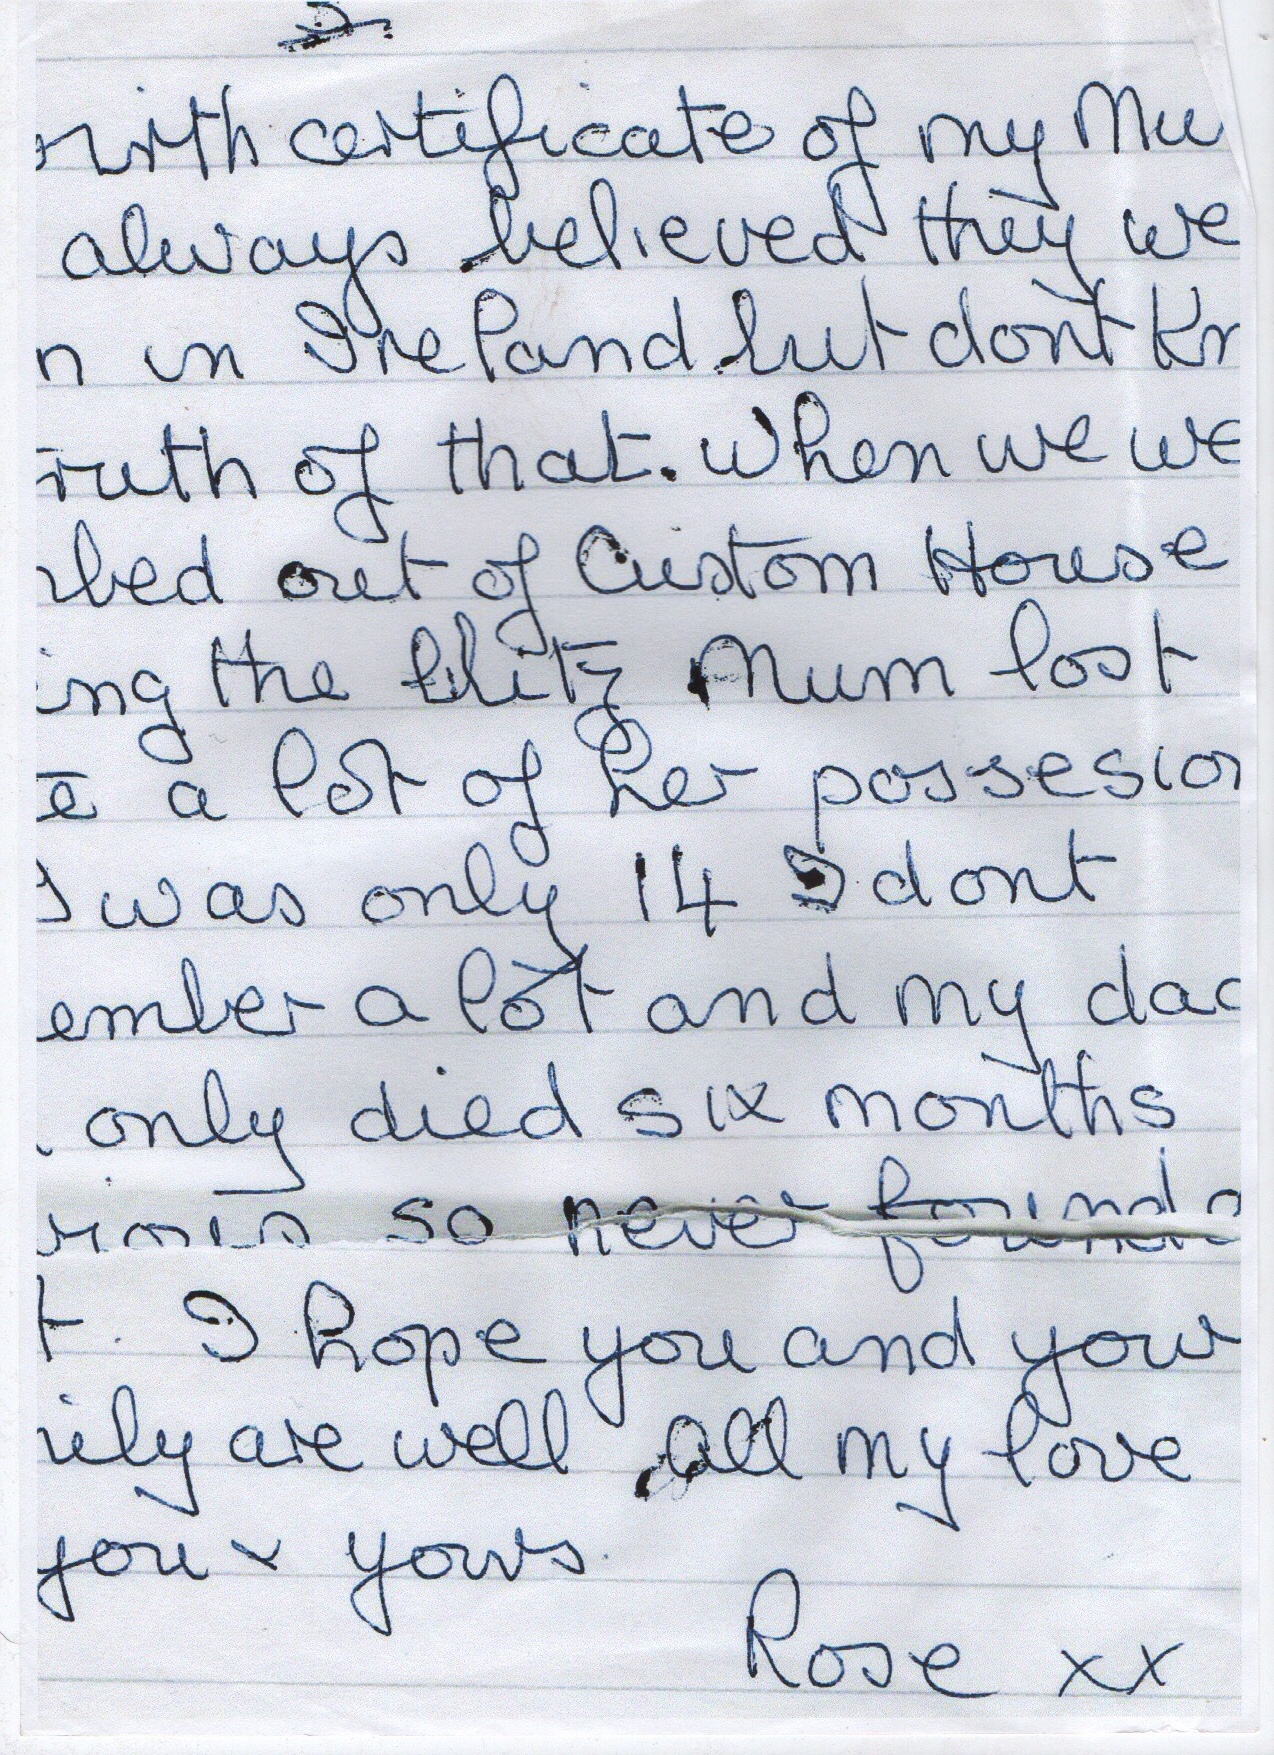 2.
birth certificate of my Mu
always believed they we
n in Ireland but dont Kn
ruth of that. When we we
bed out of Custom House
ing the blitz Mum lost
te a lot of her possesion
I was only 14 I dont
ember a lot and my dad
only died six months
vious so never found o
t. I hope you and your
ily are well all my love
you & yours.
Rose xx